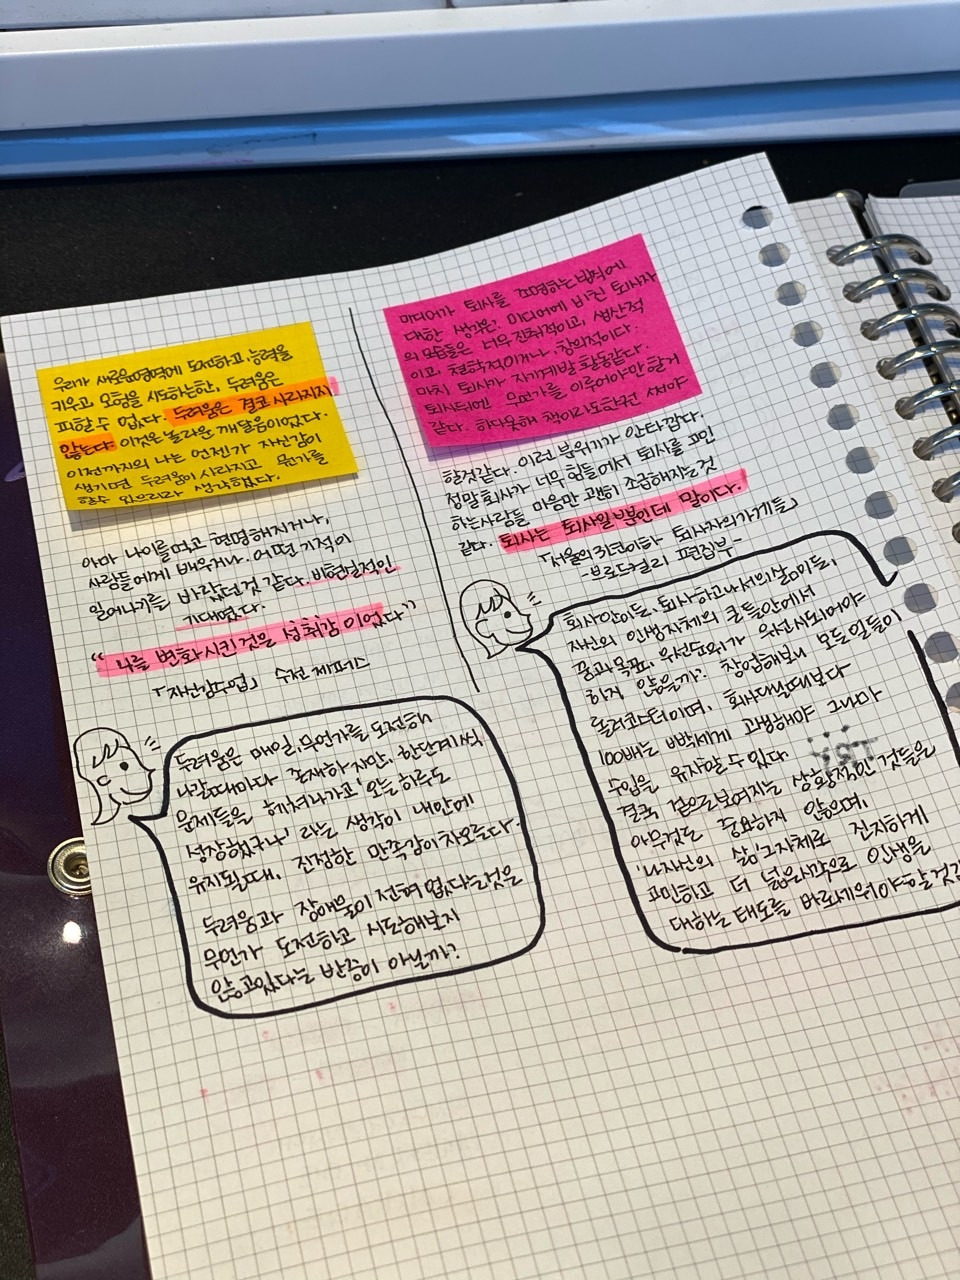 우리가 새로운 영역에 도전하고, 능력을
키우고, 모험을 시도하는한, 두려움은
피할수 없다. 두려움은 결코 사라지지
않는다. 이것은 놀라운 깨달음이었다.
이전까지의 나는 언젠가 자신감이
생기면 두려움이 사라지고 뭔가를
할수 있으리라 생각했다.
아마 나이를먹고 현명해지거나,
사람들에게 배우거나. 어떤 기적이
일어나기를 바랐던것 같다. 비현실적인
기대였다.
"나를 변화시킨것은 성취감 이었다"
「자신감수업」 수전 제퍼스
두려움은 매일, 무언가를 도전해
나갈때마다 존재하지만, 한단계씩
문제들을 헤쳐나가고 '오늘하루도
성장했구나' 라는 생각이 내안에
유지될때, 진정한 만족감이차오른다.
두려움과 장애물이 전혀 없다는것은
무언가 도전하고 시도해보지
않고있다는 반증이 아닐까?
미디어가 퇴사를 조명하는방식에
대한 생각은. 미디어에 비친 퇴사자
의 모습들은 너무 진취적이고, 생산적
이고, 철학적이거나, 창의적이다.
마치 퇴사가 자기계발 활동같다.
퇴사뒤엔 무언가를 이루어야만 할거
같다. 하다못해 책이라도한권 써야
할것같다. 이런 분위기가 안타깝다.
정말 회사가 너무 힘들어서 퇴사를 고민
하는사람들 마음만 괜히 조급해지는것
같다. 퇴사는 퇴사일 뿐인데 말이다.
「서울의 3년이하 퇴사자의가게들」
-브로드컬리 편집부-
회사안이들, 퇴사하고나서의삶이들,
자신의 인생자체의 큰 틀안에서
꿈과목표, 우선순위가 우선시되어야
하지 않을까? 창업해보니 모든일들이
롤러코스터이며, 회사다닐때보다
100배는 빡세게 고생해야 그나마
수입을 유지할수있다
결국 겉으로보여지는 상황적인 것들은
아무것도 중요하지 않으며,
'나자신의 삶'그자체로 진지하게
고민하고 더 넓은시각으로 인생을
대하는태도를 바로세워야할것